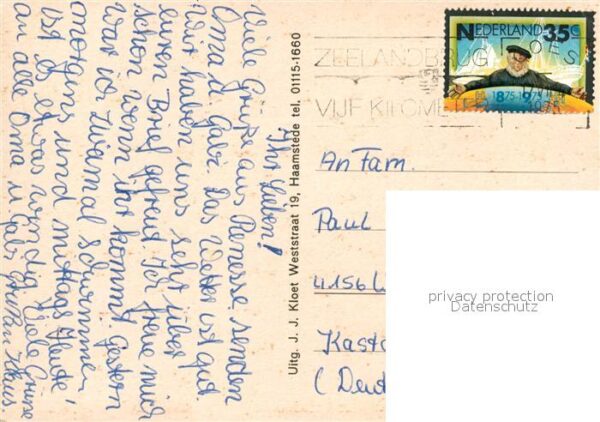 Ihr Lieben!
Viele Grüße aus Renesse senden
Oma u. Gabi. Das Wetter ist gut
Wir haben uns sehr über
euren Brief gefreut. Ich freue mich
schon wenn Ihr kommt. Gestern
war ich zwamal schwimmen
morgens und mittags. Heute
ist es etwas windig. Viele Grüße
an alle Oma u. Gabi
Klaus.
Uitg. J. J. Kloet Weststraat 19, Haamstede tel. 01115-1660
NEDERLAND 35c
1875-1975
ZEELANDBRUG
VIJF KILOMETER
1975
An Fam.
Paul
4156
Kast
(Deut
privacy protection
Datenschutz